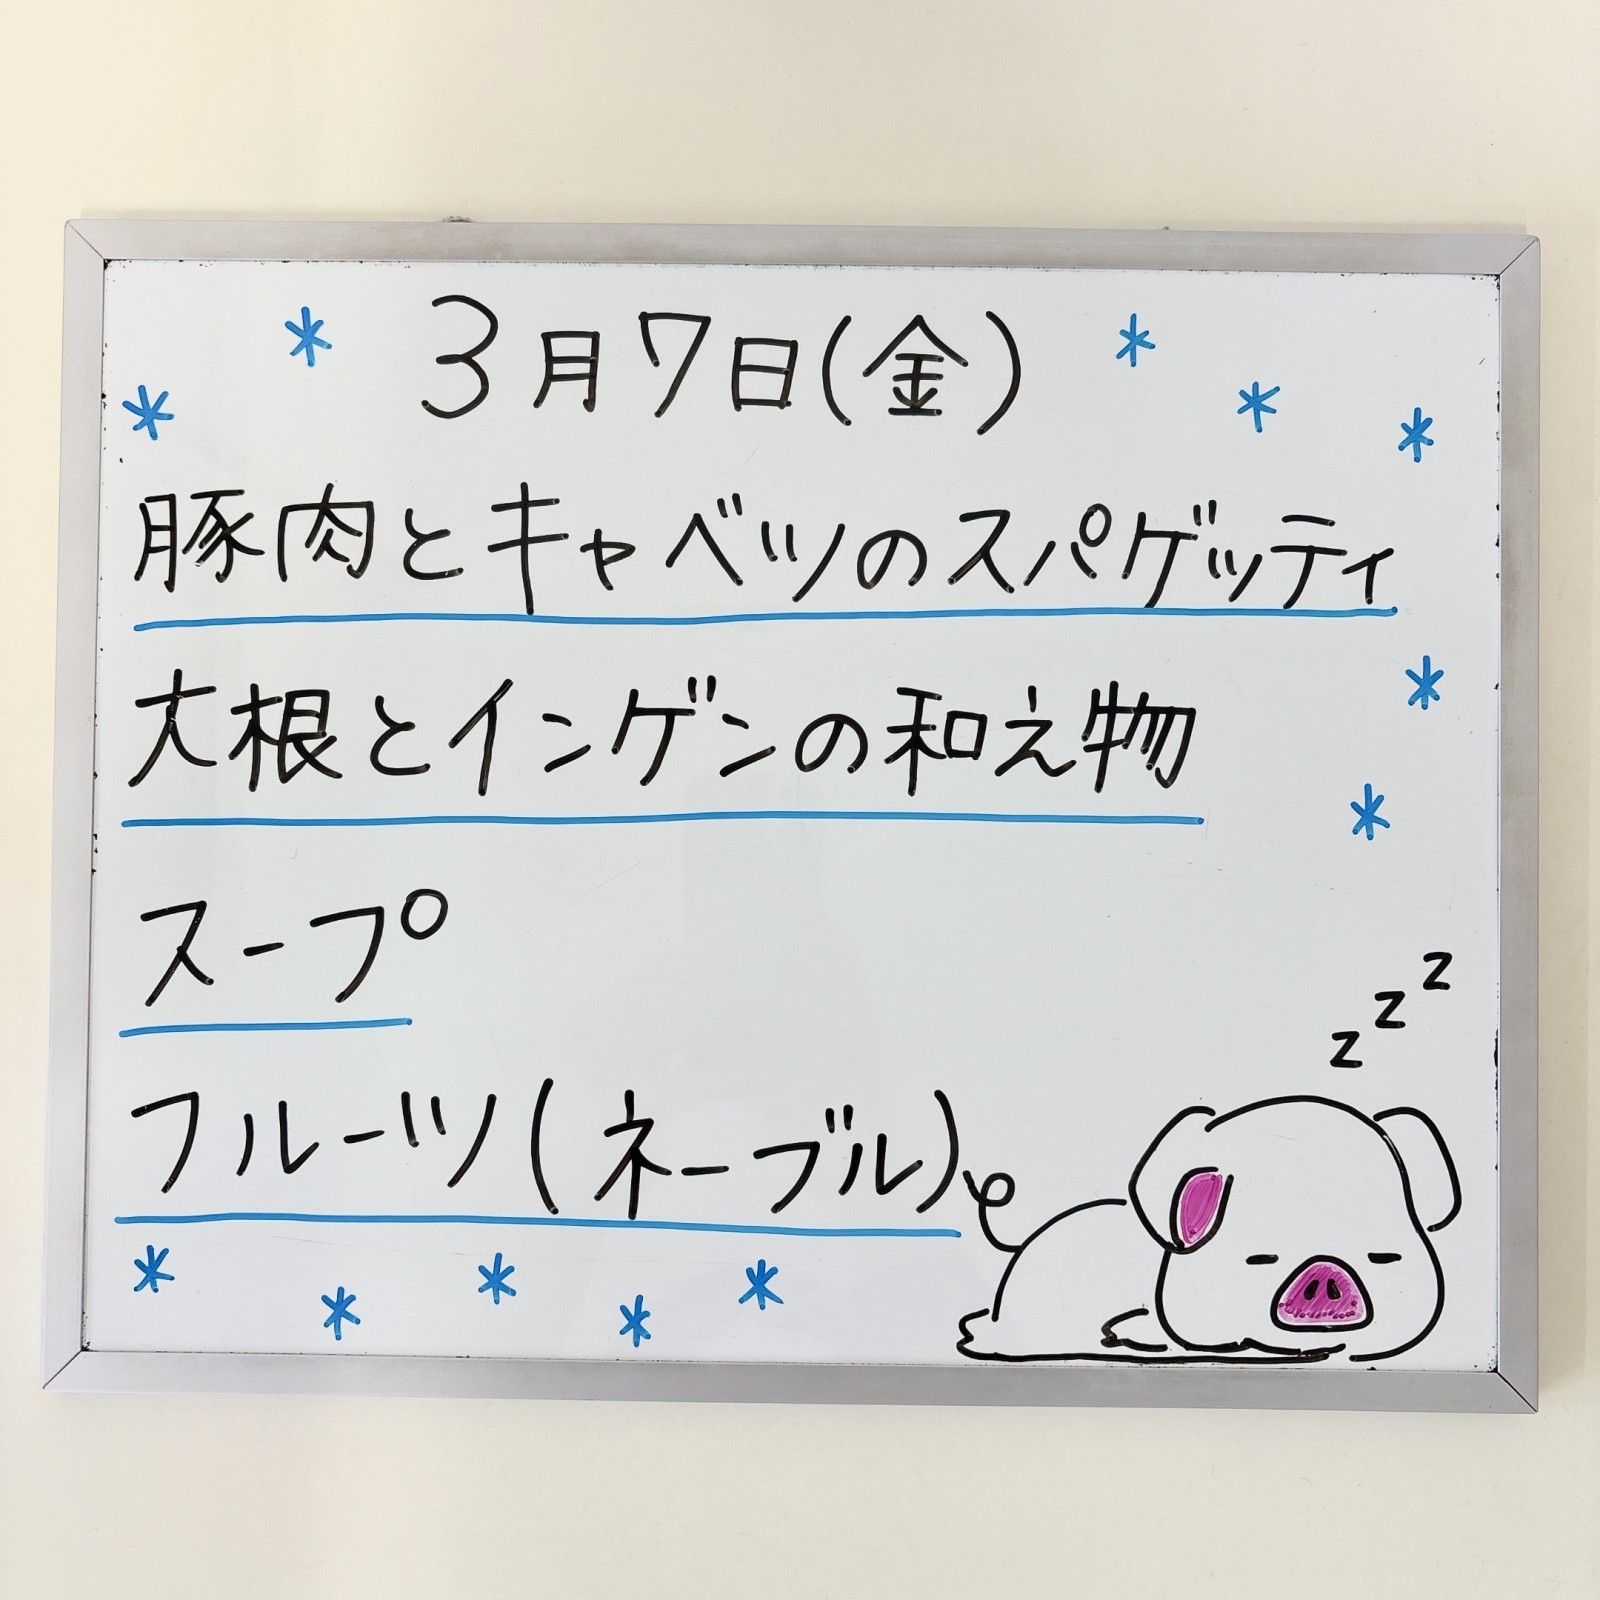 3月7日(金)
豚肉とキャベツのスパゲッティ
大根とインゲンの和え物
スープ
フルーツ(ネーブル)
z z z